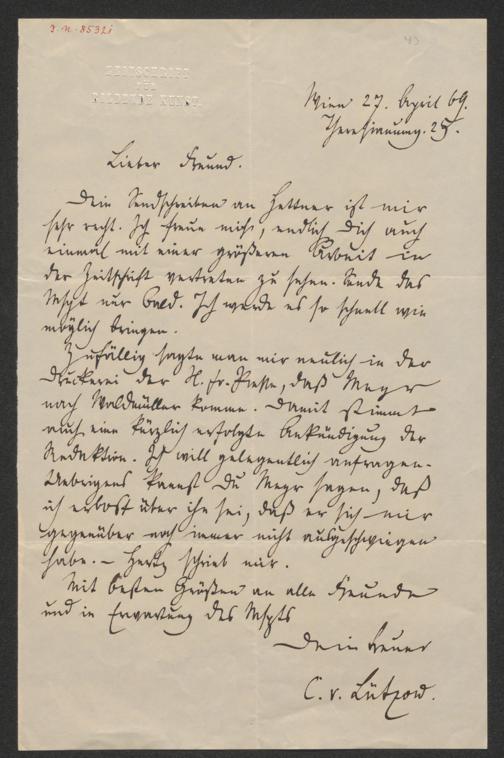 I.N. 85321
43
ZEITSCHRIFT
FÜR
BILDENDE KUNST.
Wien 27. April 69.
Theresianumg. 25.
Lieber Freund.
Dein Sendschreiben an Hettner ist mir
sehr recht. Ich freue mich, endlich Dich auch
einmal mit einer größeren Arbeit in
der Zeitschrift vertreten zu sehen. Sende das
Mspt nur bald. Ich werde es so schnell wie
möglich bringen.
Zufällig sagte man mir neulich in der
Druckerei der N. fr. Presse, daß Meyr
nach Waldmüller komme. Damit stimmt
auch eine kürzlich erfolgte Ankündigung der
Redaktion. Ich will gelegentlich anfragen.
Uebrigens kannst Du Meyr sagen, daß
ich erbost über ihn sei, daß er sich mir
gegenüber noch immer nicht ausgeschwiegen
habe. – schrieb mir.
Mit besten Grüßen an alle Freunde
und in Erwartung des Mspts
Dein treuer
C. v. Lützow.